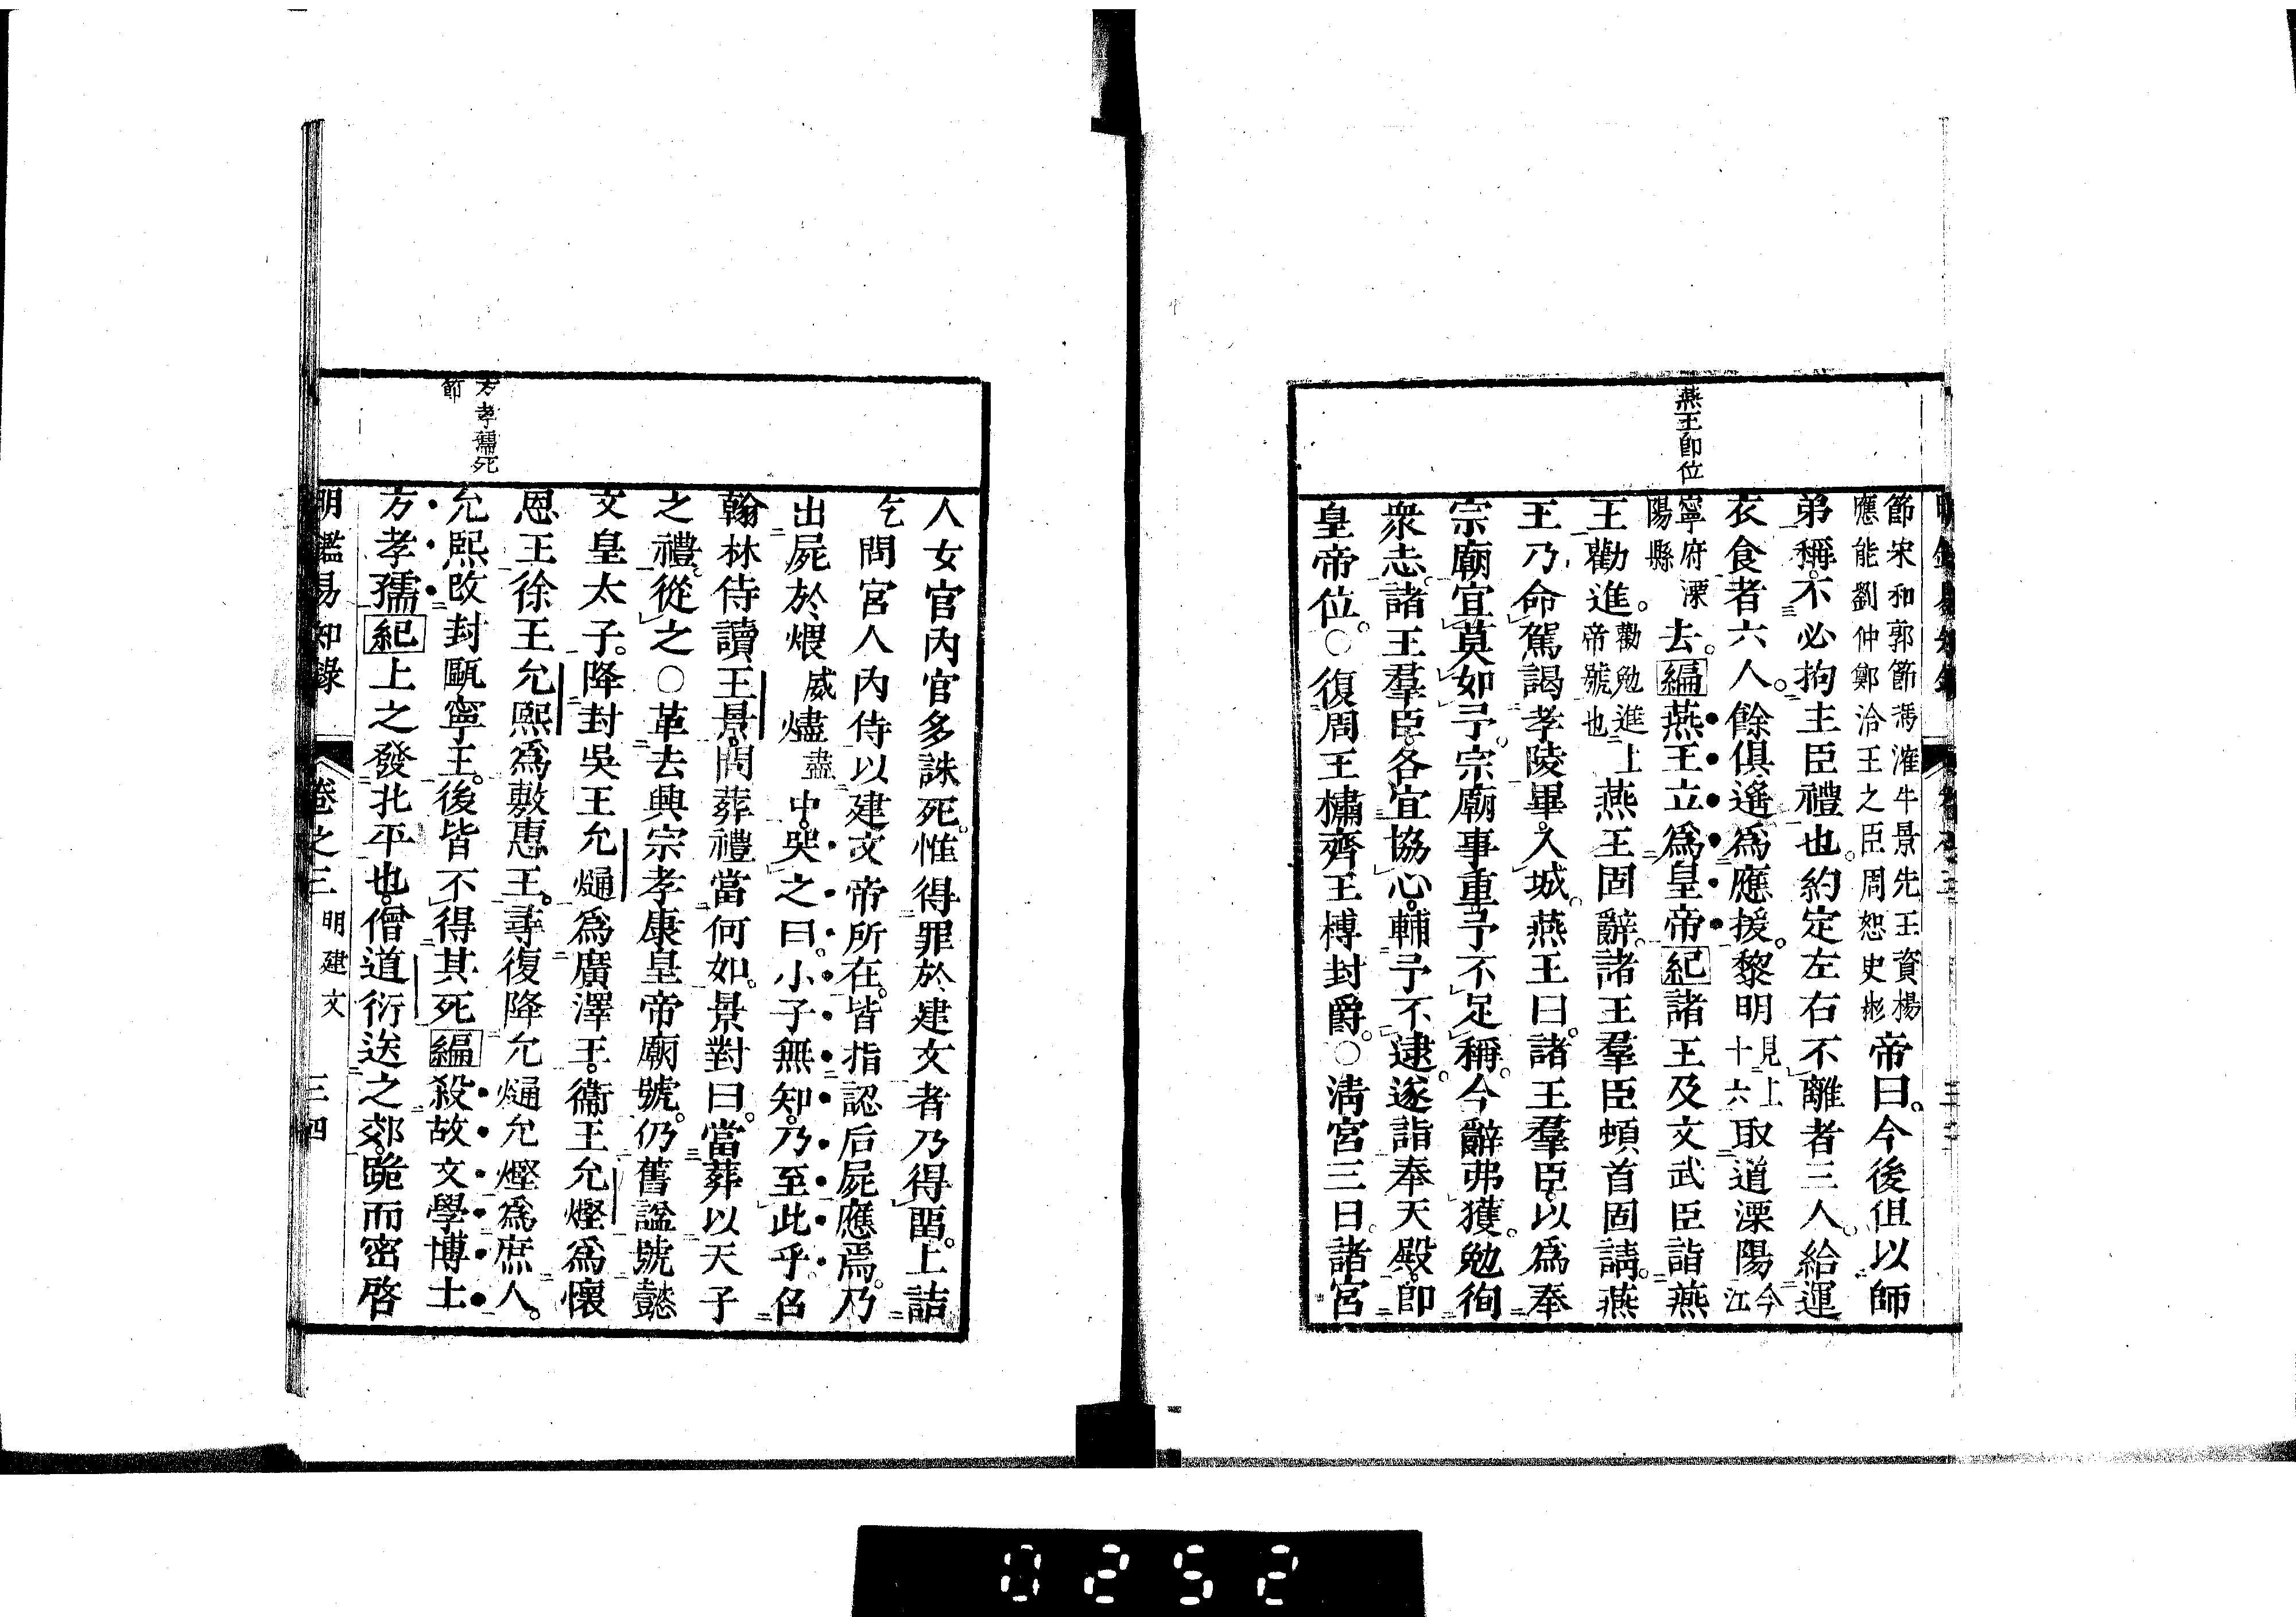 燕王即位
節宋和郭節馮㴶牛景先王資楊
應能劉仲鄭洽王之臣周恕史彬
帝曰今後但以師
弟稱不必拘主臣禮也約定左右不離者三人給運
衣食者六人餘俱遙爲應援黎明見上十六取道溧陽今江
寧府溧陽縣去編燕王立爲皇帝紀諸王及文武臣詣燕
王勸進勸勉進上帝號也燕王固辭諸王羣臣頓首固請燕
王乃命駕謁孝陵畢入城燕王曰諸王羣臣以爲奉
宗廟宜莫如予宗廟事重予不足稱今辭弗獲勉徇
衆志諸王羣臣各宜協心輔予不逮遂詣奉天殿即
皇帝位○復周王橚齊王榑封爵○淸宮三日諸宮
人女官內官多誅死惟得罪於建文者乃得畱上詰
乞問宮人內侍以建文帝所在皆指認后屍應焉乃
出屍於煨威燼盡中哭之曰小子無知乃至此乎召
翰林侍讀王景問葬禮當何如景對曰當葬以天子
之禮從之○革去興宗孝康皇帝廟號仍舊謚號懿
文皇太子降封吳王允熥爲廣澤王衞王允熞爲懷
恩王徐王允熙爲敷惠王尋復降允熥允熞爲庶人
允熙改封甌寧王後皆不得其死編殺故文學博士
方孝孺紀上之發北平也僧道衍送之郊跪而密啓
方孝孺死
節
明鑑易知錄 卷之三 明建文 三四
0252